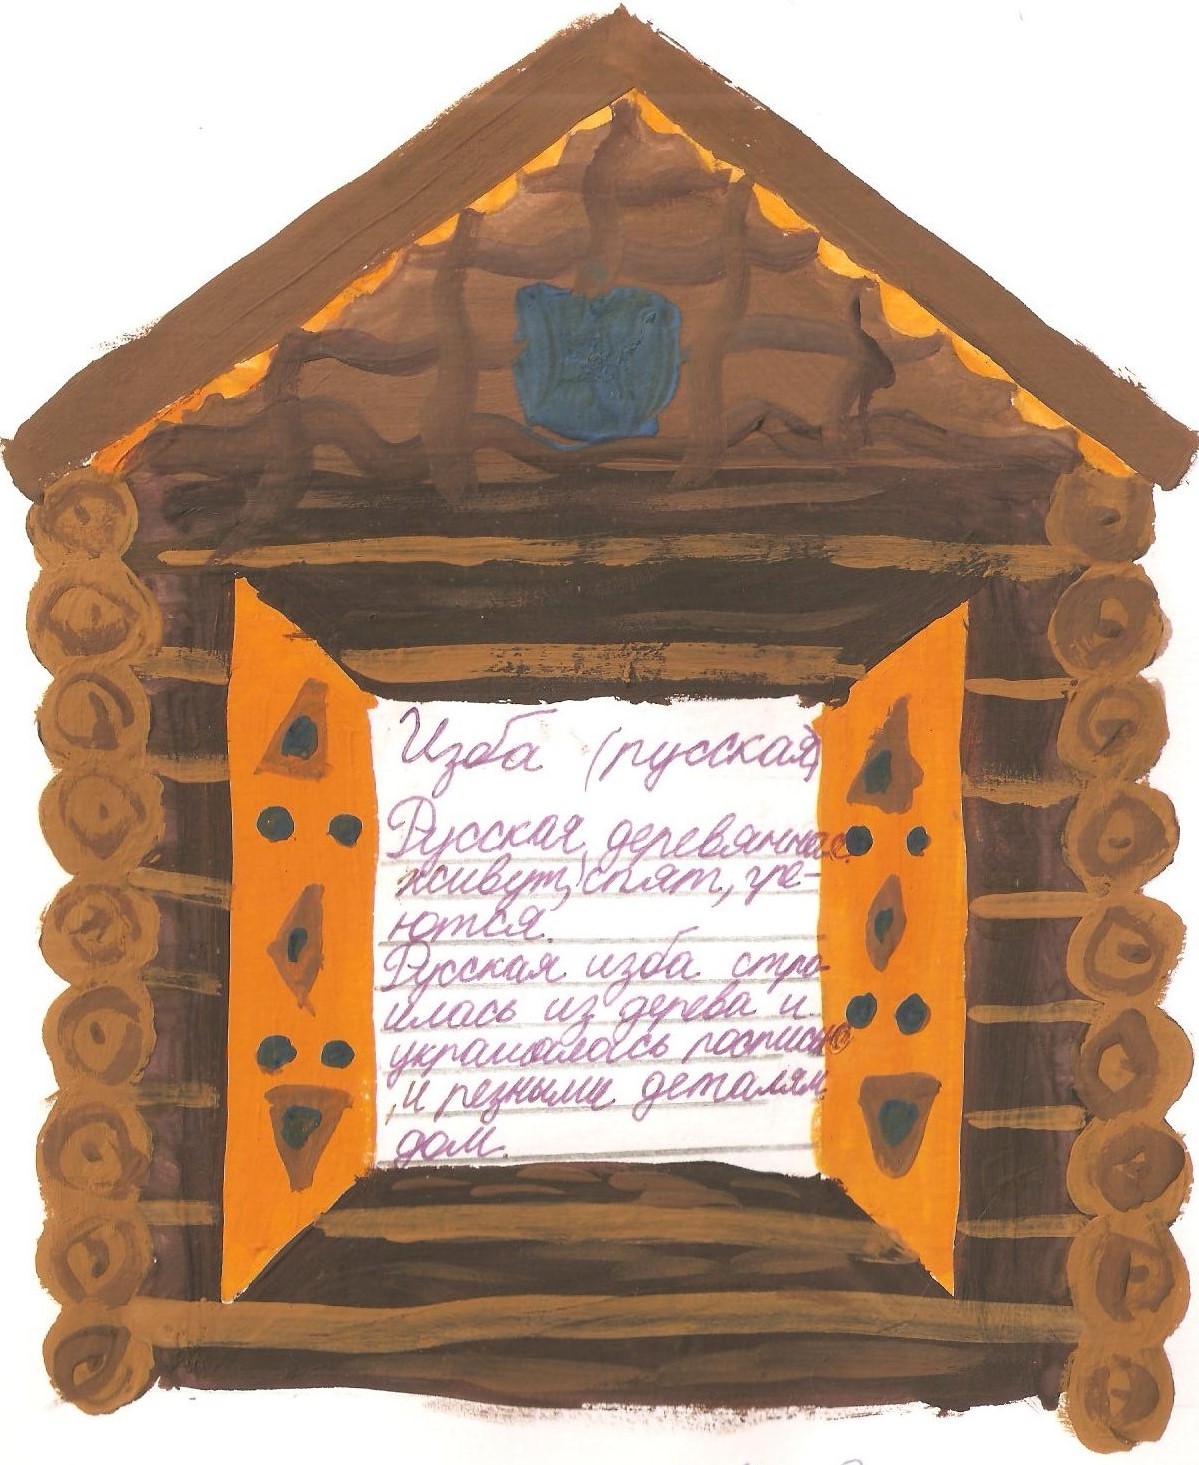 Изба (русская)
Русская деревянная
живут, спят, гре-
ются.
Русская изба стро-
илась из дерева и
украшалась росписью
, и резными деталям
дом.